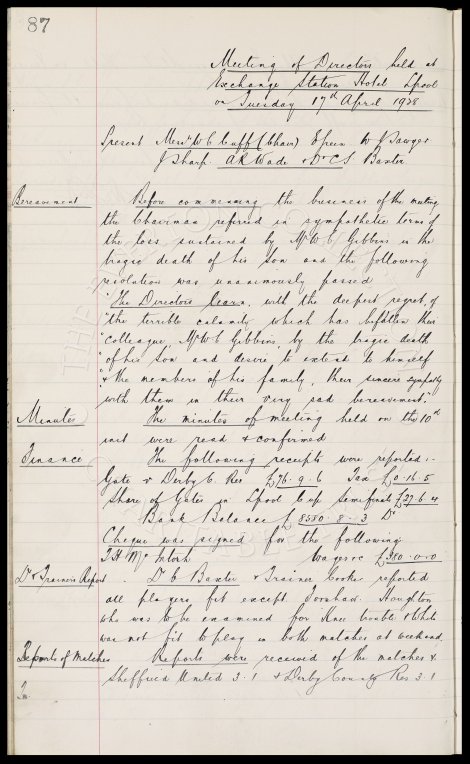 87
Meeting of Directors held at
Exchange Station Hotel Lpool
on Tuesday 17th April 1928
Present Messrs W C Cuff (Chair) E Green W J Sawyer
J Sharp. A R Wade & Dr C S Baxter
Bereavement Before commencing the business of the meeting
the Chairman referred in sympathetic terms of
the loss sustained by Mr W C Gibbins in the
tragic death of his son and the following
resolution was unanimously passed
"The Directors learn, with the deepest regret, of
"the terrible calamity which has befallen their
"colleague, Mr W C Gibbins, by the tragic death
"of his son and desire to extend to himself
"& the members of his family, their sincere sympathy
with them in their very sad bereavement"
Minutes The minutes of meeting held on the 10th
inst were read & confirmed
Finance The following receipts were reported:-
Gate v Derby C Res £76.9.6 Tax £0.16.5
Share of Gates in Lpool Cup Semifinals £27.6.4
Bank Balance £8580.8.3 Dr
Cheque was signed for the following
T H McIntosh Wages &c £380.0.0
Dr & Trainers Report. Dr C Baxter & Trainer Cooke reported
all players fit except Houghton
who was to be examined for Knee trouble & White
was not fit to play in both matches at weekend.
Reports of Matches Reports were received of the matches v
Sheffield United 3.1 & Derby County Res 3.1